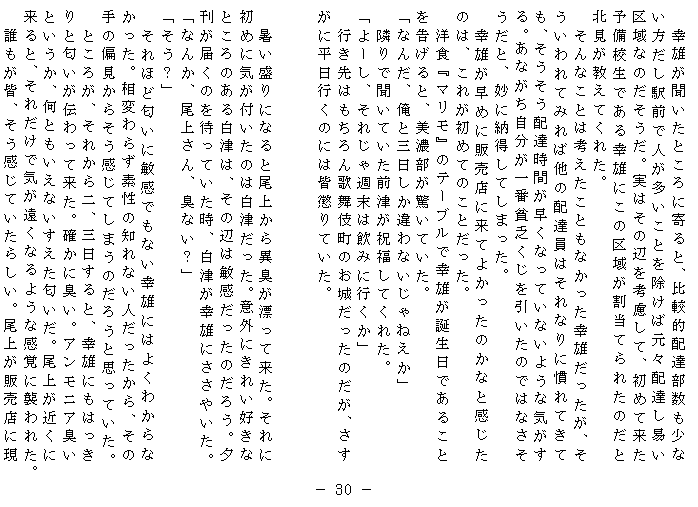 幸雄が聞いたところに寄ると、比較的配達部数も少な
い方だし駅前で人が多いことを除けば元々配達し易い
区域なのだそうだ。実はその辺を考慮して、初めて来た
予備校生である幸雄にこの区域が割当てられたのだと
北見が教えてくれた。
　そんなことは考えたこともなかった幸雄だったが、そ
ういわれてみれば他の配達員はそれなりに慣れてきて
も、そうそう配達時間が早くなっていないような気がす
る。あながち自分が一番貧乏くじを引いたのではなさそ
うだと、妙に納得してしまった。
　幸雄が早めに販売店に来てよかったのかなと感じた
のは、これが初めてのことだった。
　洋食『マリモ』のテーブルで幸雄が誕生日であること
を告げると、美濃部が驚いていた。
「なんだ、俺と三日しか違わないじゃねえか」
　隣りで聞いていた前津が祝福してくれた。
「よーし、それじゃ週末は飲みに行くか」
　行き先はもちろん歌舞伎町のお城だったのだが、さす
がに平日行くのには皆懲りていた。
　暑い盛りになると尾上から異臭が漂って来た。それに
初めに気が付いたのは白津だった。意外にきれい好きな
ところのある白津は、その辺は敏感だったのだろう。夕
刊が届くのを待っていた時、白津が幸雄にささやいた。
「なんか、尾上さん、臭ない？」
「そう？」
　それほど匂いに敏感でもない幸雄にはよくわからな
かった。相変わらず素性の知れない人だったから、その
手の偏見からそう感じてしまうのだろうと思っていた。
　ところが、それから二、三日すると、幸雄にもはっき
りと匂いが伝わって来た。確かに臭い。アンモニア臭い
というか、何ともいえないすえた匂いだ。尾上が近くに
来ると、それだけで気が遠くなるような感覚に襲われた。
　誰もが皆、そう感じていたらしい。尾上が販売店に現
− 30 −